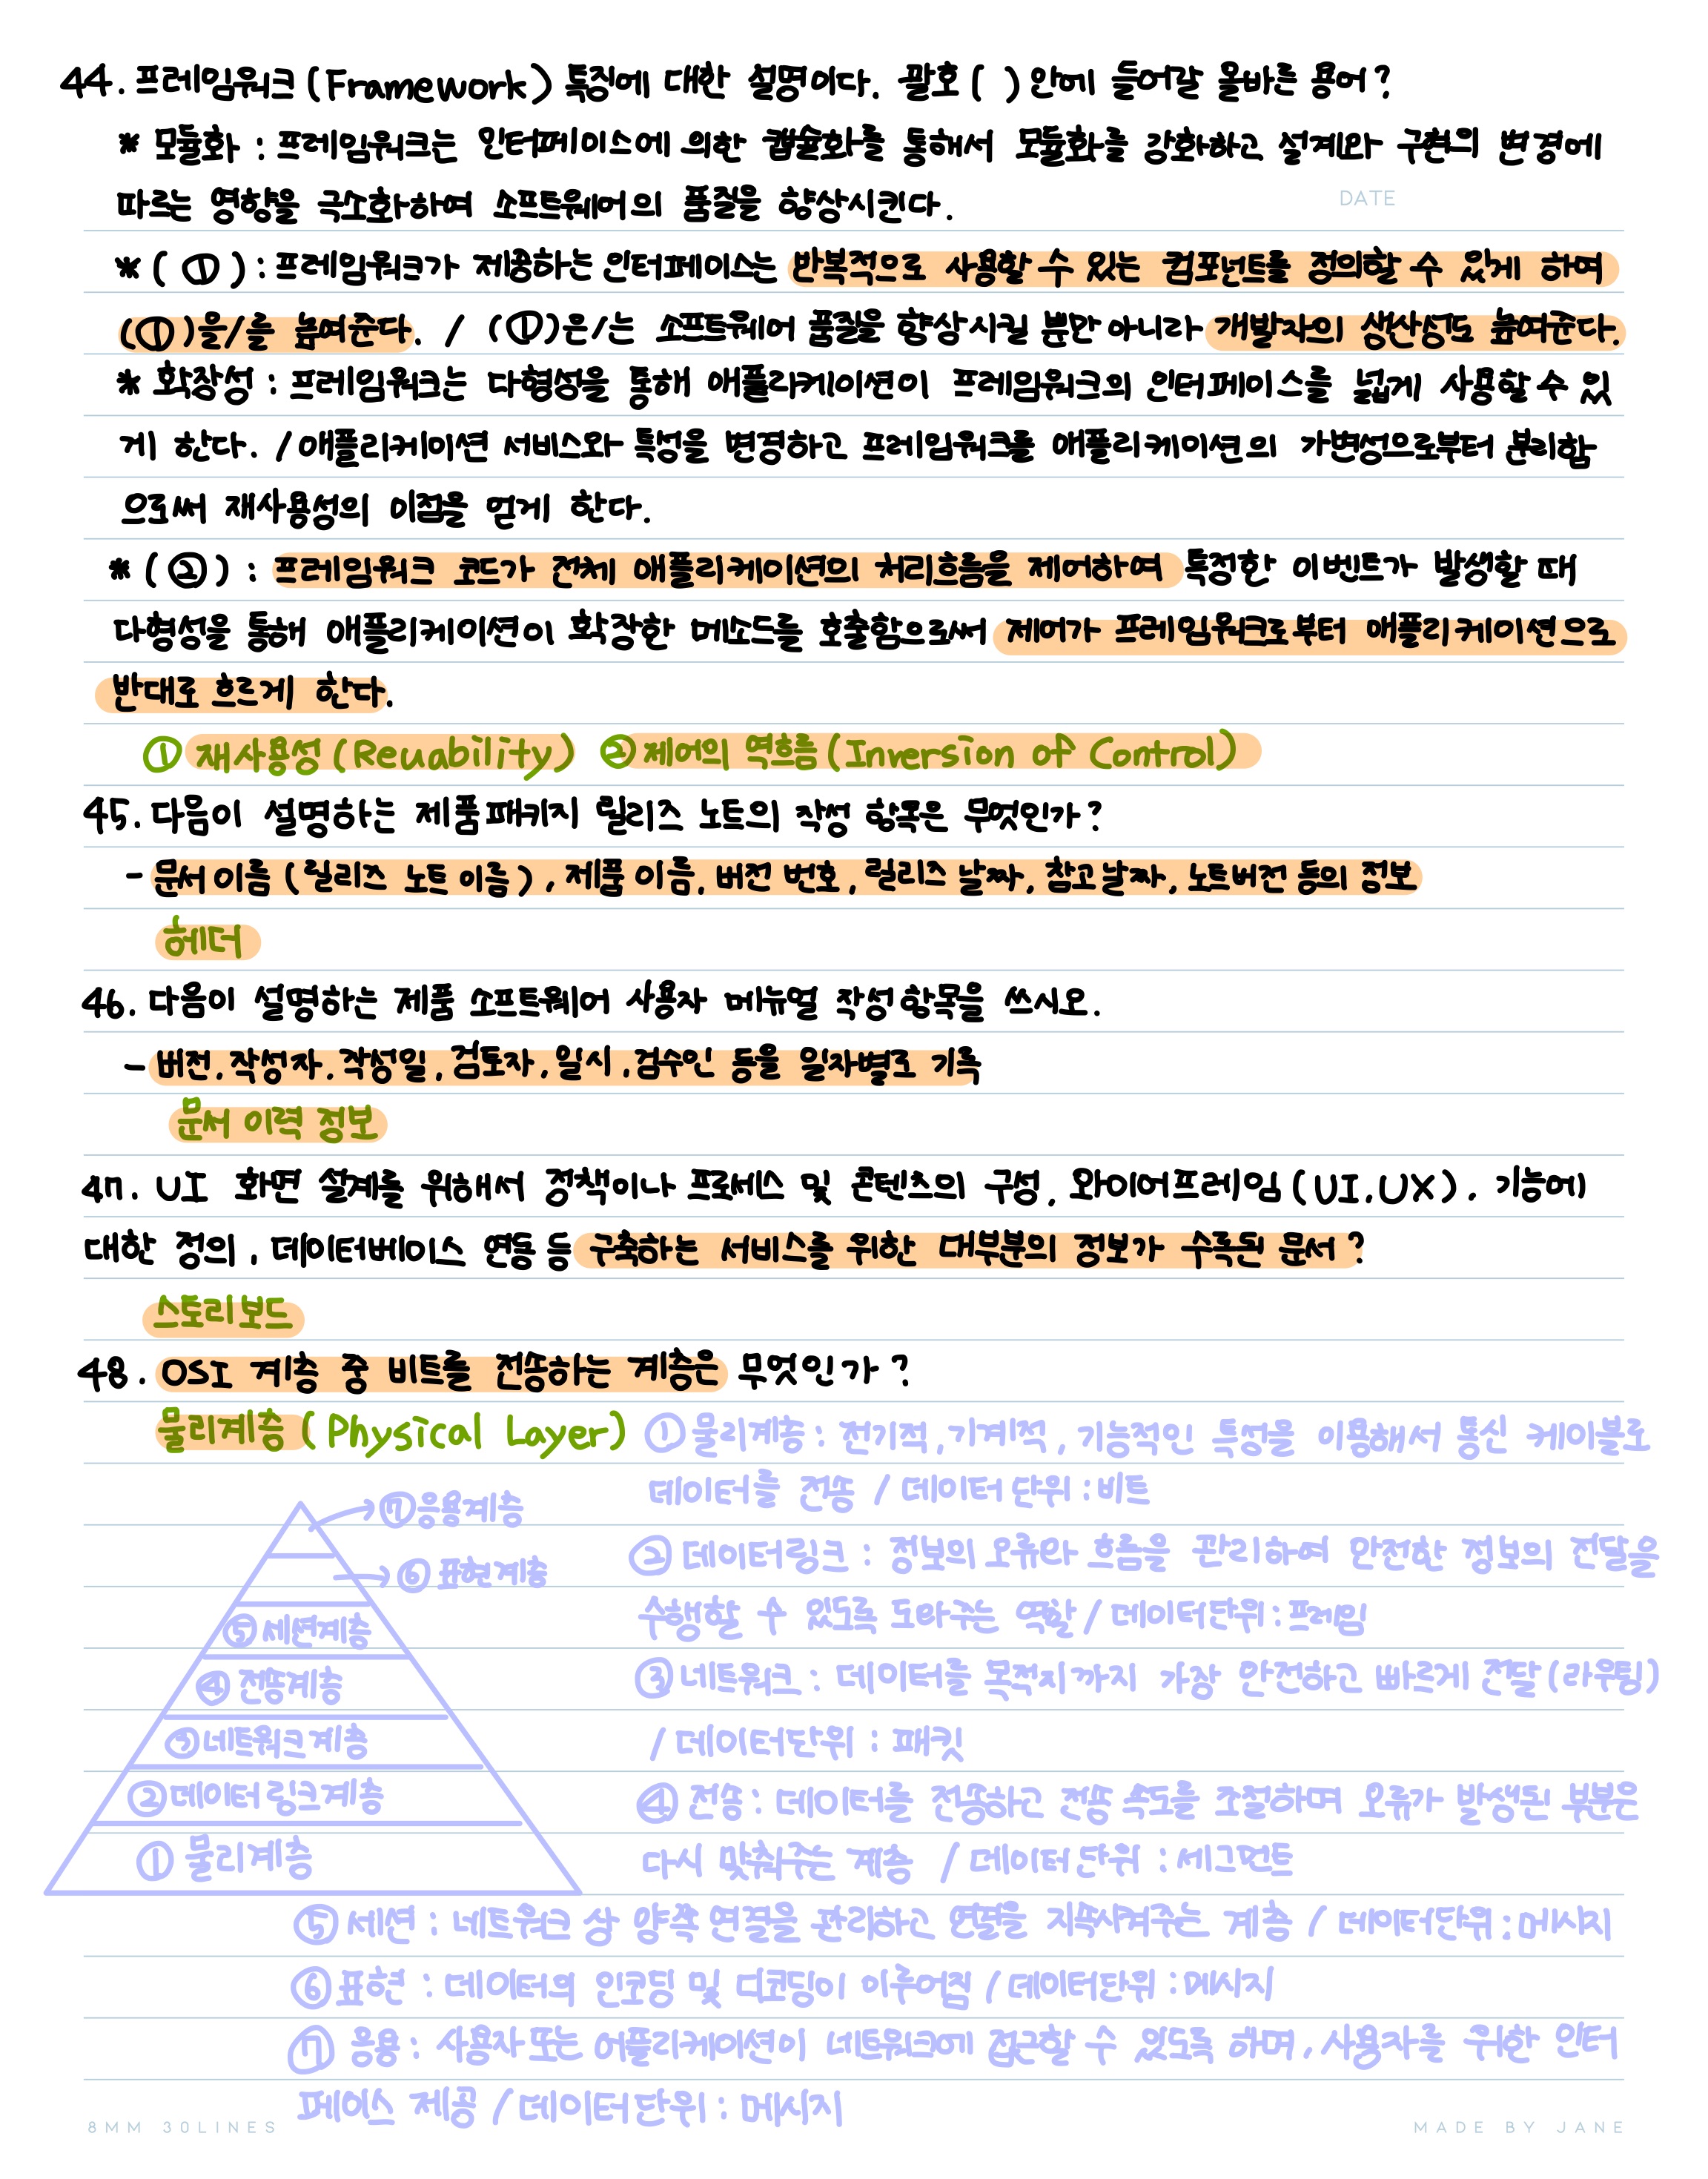 44. 프레임워크 (Framework) 특징에 대한 설명이다. 괄호 ( ) 안에 들어갈 올바른 용어?
* 모듈화 : 프레임워크는 인터페이스에 의한 캡슐화를 통해서 모듈화를 강화하고 설계와 구현의 변경에
따르는 영향을 극소화하여 소프트웨어의 품질을 향상시킨다.
DATE
* ( ① ) : 프레임워크가 제공하는 인터페이스는 반복적으로 사용할 수 있는 컴포넌트를 정의할 수 있게 하여
(①)을/를 높여준다. / (①)은/는 소프트웨어 품질을 향상시킬 뿐만 아니라 개발자의 생산성도 높여준다.
* 확장성 : 프레임워크는 다형성을 통해 애플리케이션이 프레임워크의 인터페이스를 넓게 사용할 수 있
게 한다. / 애플리케이션 서비스와 특성을 변경하고 프레임워크를 애플리케이션의 가변성으로부터 분리함
으로써 재사용성의 이점을 얻게 한다.
* ( ② ) : 프레임워크 코드가 전체 애플리케이션의 처리흐름을 제어하여 특정한 이벤트가 발생할 때
다형성을 통해 애플리케이션이 확장한 메소드를 호출함으로써 제어가 프레임워크로부터 애플리케이션으로
반대로 흐르게 한다.
① 재사용성 (Reuability) ② 제어의 역흐름 (Inversion of Control)
45. 다음이 설명하는 제품패키지 릴리즈 노트의 작성 항목은 무엇인가?
- 문서 이름 (릴리즈 노트 이름), 제품 이름, 버전 번호, 릴리즈 날짜, 참고 날짜, 노트버전 등의 정보
헤더
46. 다음이 설명하는 제품 소프트웨어 사용자 메뉴얼 작성 항목을 쓰시오.
- 버전, 작성자, 작성일, 검토자, 일시, 검수인 등을 일자별로 기록
문서 이력 정보
47. UI 화면 설계를 위해서 정책이나 프로세스 및 콘텐츠의 구성, 와이어프레임 (UI, UX), 기능에
대한 정의, 데이터베이스 연동 등 구축하는 서비스를 위한 대부분의 정보가 수록된 문서?
스토리보드
48. OSI 계층 중 비트를 전송하는 계층은 무엇인가?
물리계층 (Physical Layer)
① 물리계층 : 전기적, 기계적, 기능적인 특성을 이용해서 통신 케이블로
데이터를 전송 / 데이터 단위 : 비트
② 데이터링크 : 정보의 오류와 흐름을 관리하여 안전한 정보의 전달을
수행할 수 있도록 도와주는 역할 / 데이터단위 : 프레임
③ 네트워크 : 데이터를 목적지까지 가장 안전하고 빠르게 전달 (라우팅)
/ 데이터단위 : 패킷
④ 전송 : 데이터를 전송하고 전송 속도를 조절하며 오류가 발생된 부분은
다시 맞춰주는 계층 / 데이터단위 : 세그먼트
⑦ 응용계층
⑥ 표현계층
⑤ 세션계층
④ 전송계층
③ 네트워크계층
② 데이터링크계층
① 물리계층
⑤ 세션 : 네트워크 상 양쪽 연결을 관리하고 연결을 지속시켜주는 계층 / 데이터단위 : 메시지
⑥ 표현 : 데이터의 인코딩 및 디코딩이 이루어짐 / 데이터단위 : 메시지
⑦ 응용 : 사용자 또는 어플리케이션이 네트워크에 접근할 수 있도록 하며, 사용자를 위한 인터
페이스 제공 / 데이터단위 : 메시지
8MM 30LINES
MADE BY JANE